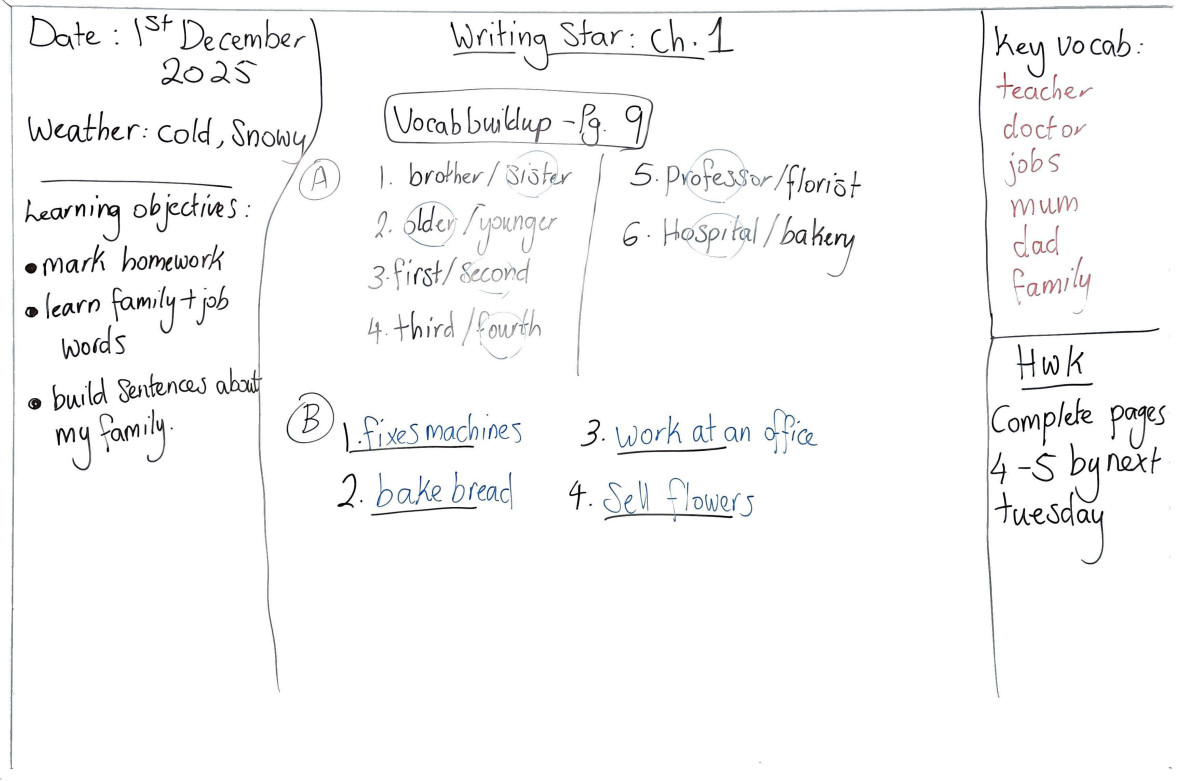 Date: 1st December
2025
Weather: cold, Snowy
Learning objectives:
• mark homework
• learn family + job
words
• build sentences about
my family.
Writing Star: Ch. 1
Vocab buildup - Pg. 9
A
1. brother/sister
2. older/younger
3. first/second
4. third/fourth
5. Professor/florist
6. Hospital/bakery
B
1. fixes machines
2. bake bread
3. work at an office
4. Sell flowers
Key vocab:
teacher
doctor
jobs
mum
dad
family
Hwk
Complete pages
4-5 by next
tuesday